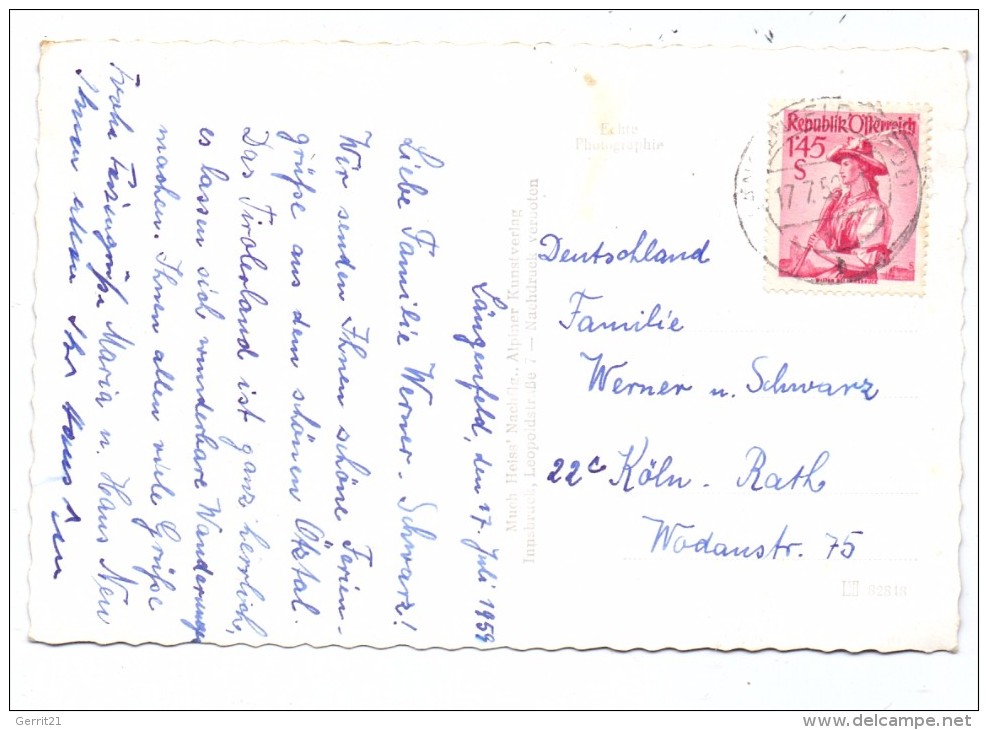 Längenfeld, den 17. Juli 1959
Liebe Familie Werner - Schwarz!
Wir senden Ihnen schöne Ferien-
grüße aus dem schönen Ötztal.
Das Tirolerland ist ganz herrlich,
es lassen sich wunderbare Wanderungen
machen. Ihnen allen viele Grüße
Maria u. Hans Neu
Frohe Feriengrüße
Ihnen allen Ihr
Echte
Photographie
Much Heiss' Nachflg., Alpiner Kunstverlag
Innsbruck, Leopoldstraße 7 — Nachdruck verboten
Republik Österreich
1'45
S
17.7.59
Deutschland
Familie
Werner u. Schwarz
22c Köln - Rath
Wodanstr. 75
82818
Gerrit21
www.delcampe.net